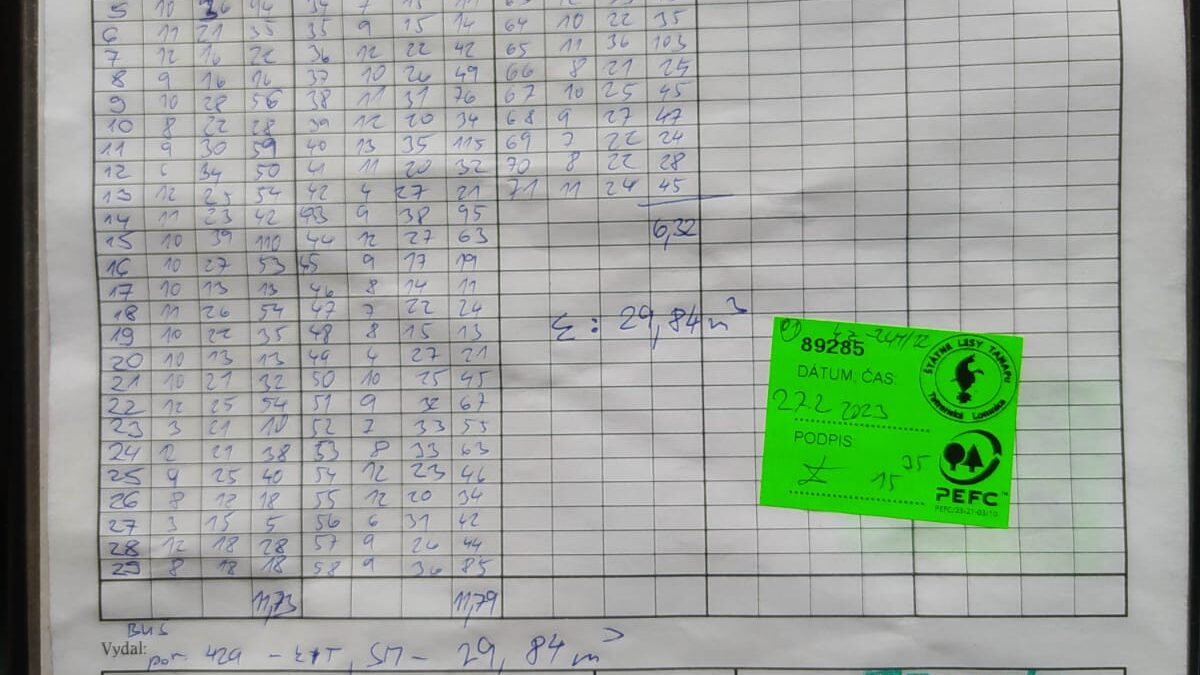 5 10
6 11 21 35 35 9 15 14 64 10 22 35
7 12 16 22 36 12 22 42 65 11 36 103
8 9 16 16 37 10 26 49 66 8 21 25
9 10 28 56 38 11 31 76 67 10 25 45
10 8 22 28 39 12 20 34 68 9 27 47
11 9 30 59 40 13 35 115 69 7 22 24
12 6 34 50 41 11 20 32 70 8 22 28
13 12 25 54 42 4 27 21 71 11 24 45
14 11 23 42 43 9 38 95
15 10 39 110 44 12 27 63 6,32
16 10 27 53 45 9 17 19
17 10 13 13 46 8 14 11
18 11 26 54 47 7 22 24
19 10 22 35 48 8 15 13
Σ: 29,84 m³
20 10 13 13 49 4 27 21
21 10 21 32 50 10 25 45
22 12 25 54 51 9 32 67
23 3 21 10 52 7 33 55
24 2 21 38 53 8 33 63
25 9 25 40 54 12 23 46
26 8 12 18 55 12 20 34
27 3 15 5 56 6 31 42
28 12 18 28 57 9 26 44
29 8 18 18 58 9 36 85
11,73 11,79
89285
DÁTUM, ČAS:
27.2 2023
PODPIS
15 35
ŠTÁTNE LESY TANAPU
Tatranská Lomnica
PEFC™
PEFC/23-21-03/10
Vydal:
por. 429 - , SM - 29,84 m³